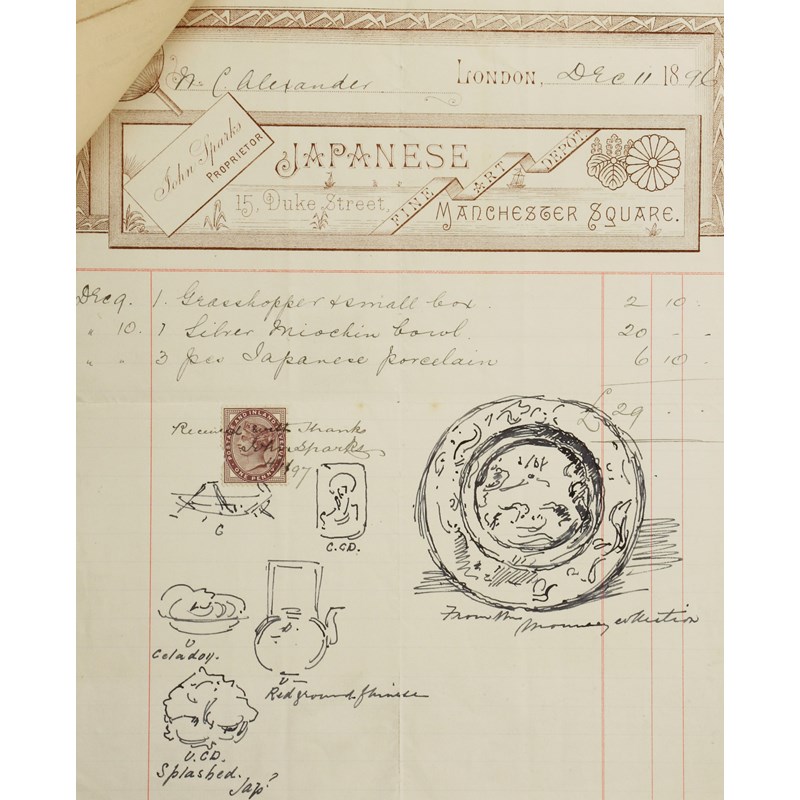 W. C. Alexander
LONDON, Dec 11 1896
John Sparks
PROPRIETOR
JAPANESE
FINE ART DEPOT
15, Duke Street,
MANCHESTER SQUARE.
Dec 9. 1. Grasshopper & small box. 2 10 -
" 10. 1 Silver Miochin bowl. 20 - -
" " 3 pcs Japanese porcelain 6 10 -
£ 29 - -
Received with thanks
John Sparks
97
POSTAGE AND INLAND REVENUE
ONE PENNY
C
C.CD.
D.
U
Celadon.
U
Red ground Chinese
From the collection
U.CD.
Splashed.
Jap?